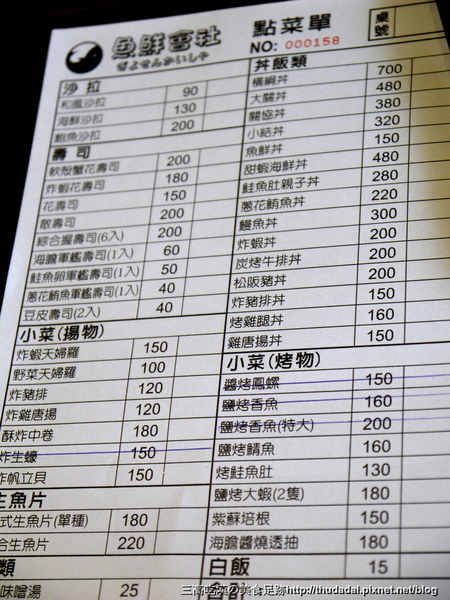 魚鮮會社
ぎょせんかいしゃ
點菜單
NO: 000158
桌號
沙拉
和風沙拉 90
海鮮沙拉 130
鮑魚沙拉 200
壽司
軟殼蟹花壽司 200
炸蝦花壽司 180
花壽司 150
散壽司 200
綜合握壽司(6入) 200
海膽軍艦壽司(1入) 60
鮭魚卵軍艦壽司(1入) 50
蔥花鮪魚軍艦壽司(1入) 40
豆皮壽司(2入) 40
小菜(揚物)
炸蝦天婦羅 150
野菜天婦羅 100
炸豬排 120
炸雞唐揚 120
酥炸中卷 180
炸生蠔 150
炸帆立貝 150
生魚片
式生魚片(單種) 180
合生魚片 220
類
味噌湯 25
丼飯類
橫綱丼 700
大關丼 480
關協丼 380
小結丼 320
魚鮮丼 150
甜蝦海鮮丼 480
鮭魚肚親子丼 280
蔥花鮪魚丼 220
鰻魚丼 300
炸蝦丼 200
炭烤牛排丼 200
松阪豬丼 200
炸豬排丼 150
烤雞腿丼 160
雞唐揚丼 150
小菜(烤物)
醬烤鳳螺 150
鹽烤香魚 160
鹽烤香魚(特大) 200
鹽烤鯖魚 160
烤鮭魚肚 130
鹽烤大蝦(2隻) 180
紫蘇培根 150
海膽醬燒透抽 180
白飯 15
合計
三高吃浜の美食足跡http://thudadai.pixnet.net/blog